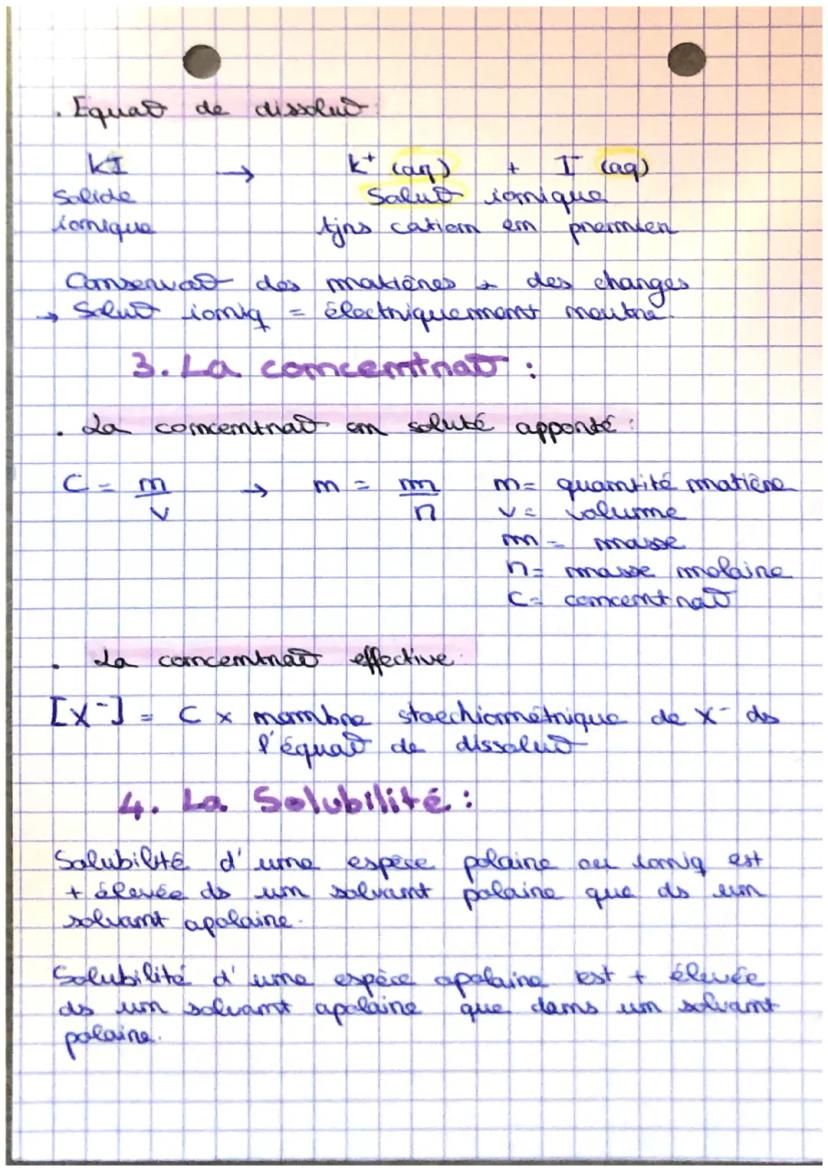 . Equat° de dissolut°
KI → K⁺ (aq) + I⁻ (aq)
Solide Solut° ionique
ionique tjrs cation en premier
Conservat° des matières + des charges
→ Solut° ioniq = électriquement neutre.
3. La concentrat° :
. La concentrat° en soluté apporté :
C = n/V → n = m/M n = quantité matière
V = volume
m = masse
M = masse molaire
C = concentrat°
. La concentrat° effective.
[X⁻] = C × nombre stoechiométrique de X⁻ ds
l'équat° de dissolut°
4. La Solubilité :
Solubilité d'une espèce polaire ou ioniq est
+ élevée ds un solvant polaire que ds un
solvant apolaire.
Solubilité d'une espèce apolaire est + élevée
ds un solvant apolaire que dans un solvant
polaire.